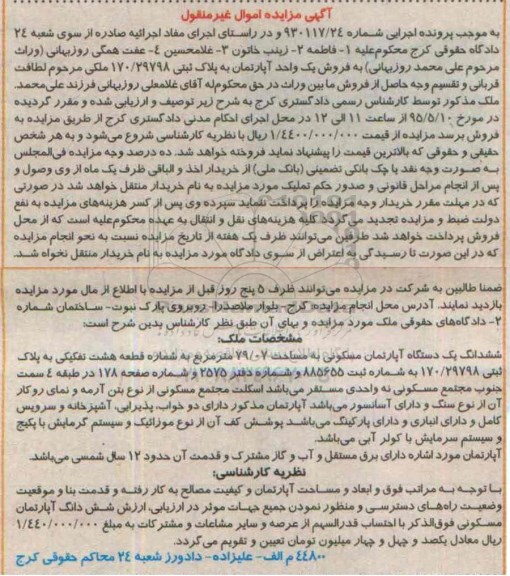 آگهی مزایده اموال غیرمنقول
به موجب پرونده اجرایی شماره ۹۳۰۱۱۷/۲۴ و در راستای اجرای مفاد اجرائیه صادره از سوی شعبه ۲۴
دادگاه حقوقی کرج محکوم‌علیه ۱- فاطمه ۲- زینب خاتون ۳- غلامحسین ۴- عفت همگی روزبهانی (وراث
مرحوم علی محمد روزبهانی) به فروش یک واحد آپارتمان به پلاک ثبتی ۱۷۰/۲۹۷۹۸ ملکی مرحوم لطافت
قربانی و تقسیم وجه حاصل از فروش ما بین وراث در حق محکوم‌له آقای غلامعلی روزبهانی فرزند علی‌محمد.
ملک مذکور توسط کارشناس رسمی دادگستری کرج به شرح زیر توصیف و ارزیابی شده و مقرر گردیده
در مورخ ۹۵/۵/۱۰ از ساعت ۱۱ الی ۱۲ در محل اجرای احکام مدنی دادگستری کرج از طریق مزایده به
فروش برسد مزایده از قیمت ۱/۴۴۰۰/۰۰۰/۰۰۰ ریال با نظریه کارشناسی شروع می‌شود و به هر شخص
حقیقی و حقوقی که بالاترین قیمت را پیشنهاد نماید فروخته خواهد شد. ده درصد وجه مزایده فی‌المجلس
به صورت وجه نقد یا چک بانکی تضمینی (بانک ملی) از خریدار اخذ و الباقی ظرف یک ماه از وی وصول و
پس از انجام مراحل قانونی و صدور حکم تملیک مورد مزایده به نام خریدار منتقل خواهد شد در صورتی
که در مهلت مقرر خریدار وجه مزایده را پرداخت ننماید سپرده وی پس از کسر هزینه‌های مزایده به نفع
دولت ضبط و مزایده تجدید می‌گردد کلیه هزینه‌های نقل و انتقال به عهده محکوم‌علیه است که از محل
فروش پرداخت خواهد شد طرفین می‌توانند ظرف یک هفته از تاریخ مزایده نسبت به نحو انجام مزایده
که در این صورت تا رسیدگی به اعتراض از سوی دادگاه مورد مزایده به نام خریدار منتقل نخواه شد.
ضمنا طالبین به شرکت در مزایده می‌توانند ظرف ۵ پنج روز قبل از مزایده با اطلاع از مال مورد مزایده
بازدید نمایند. آدرس محل انجام مزایده: کرج- بلوار ملاصدرا- روبروی پارک نبوت- ساختمان شماره
۲- دادگاه‌های حقوقی ملک مورد مزایده و بهای آن طبق نظر کارشناس بدین شرح است:
مشخصات ملک:
ششدانگ یک دستگاه آپارتمان مسکونی به مساحت ۷۹/۰۷ متر مربع به شماره قطعه هشت تفکیکی به پلاک
ثبتی ۱۷۰/۲۹۷۹۸ به شماره ثبت ۸۸۵۶۵۵ و شماره دفتر ۲۵۷۵ و شماره صفحه ۱۷۸ در طبقه ۴ سمت
جنوب مجتمع مسکونی نه واحدی مستقر می‌باشد اسکلت مجتمع مسکونی از نوع بتن آرمه و نمای روکار
آن از نوع سنگ و دارای آسانسور می‌باشد آپارتمان مذکور دارای دو خواب، پذیرایی، آشپزخانه و سرویس
کامل و دارای انباری و دارای پارکینگ می‌باشد پوشش کف آن از نوع موزائیک و سیستم گرمایش با پکیج
و سیستم سرمایش با کولر آبی می‌باشد.
آپارتمان مورد اشاره دارای برق مستقل و آب و گاز مشترک و قدمت آن حدود ۱۲ سال شمسی می‌باشد.
نظریه کارشناسی:
با توجه به مراتب فوق و ابعاد و مساحت آپارتمان و کیفیت مصالح به کار رفته و قدمت بنا و موقعیت
وضعیت راه‌های دسترسی و منظور نمودن جمیع جهات موثر در ارزیابی، ارزش شش دانگ آپارتمان
مسکونی فوق‌الذکر با احتساب قدرالسهم از عرصه و سایر مشاعات و مشترکات به مبلغ ۱/۴۴۰/۰۰۰/۰۰۰
ریال معادل یکصد و چهل و چهار میلیون تومان تعیین و تقویم می‌گردد.
۴۴۸۰۰ م الف- علیزاده- دادورز شعبه ۲۴ محاکم حقوقی کرج